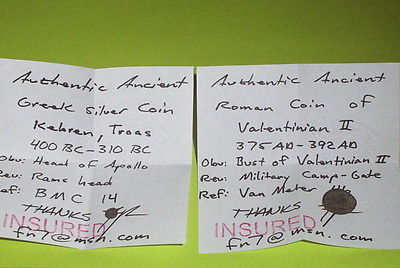 Authentic Ancient
Greek Silver Coin
Kebren, Troas
400 BC-310 BC
Obv: Head of Apollo
Rev: Rams head
Ref: BMC 14
THANKS
INSURED
fn7@msn.com
Authentic Ancient
Roman Coin of
Valentinian II
375 AD-392 AD
Obv: Bust of Valentinian II
Rev: Military Camp-Gate
Ref: Van Meter
THANKS
INSURED
fn7@msn.com